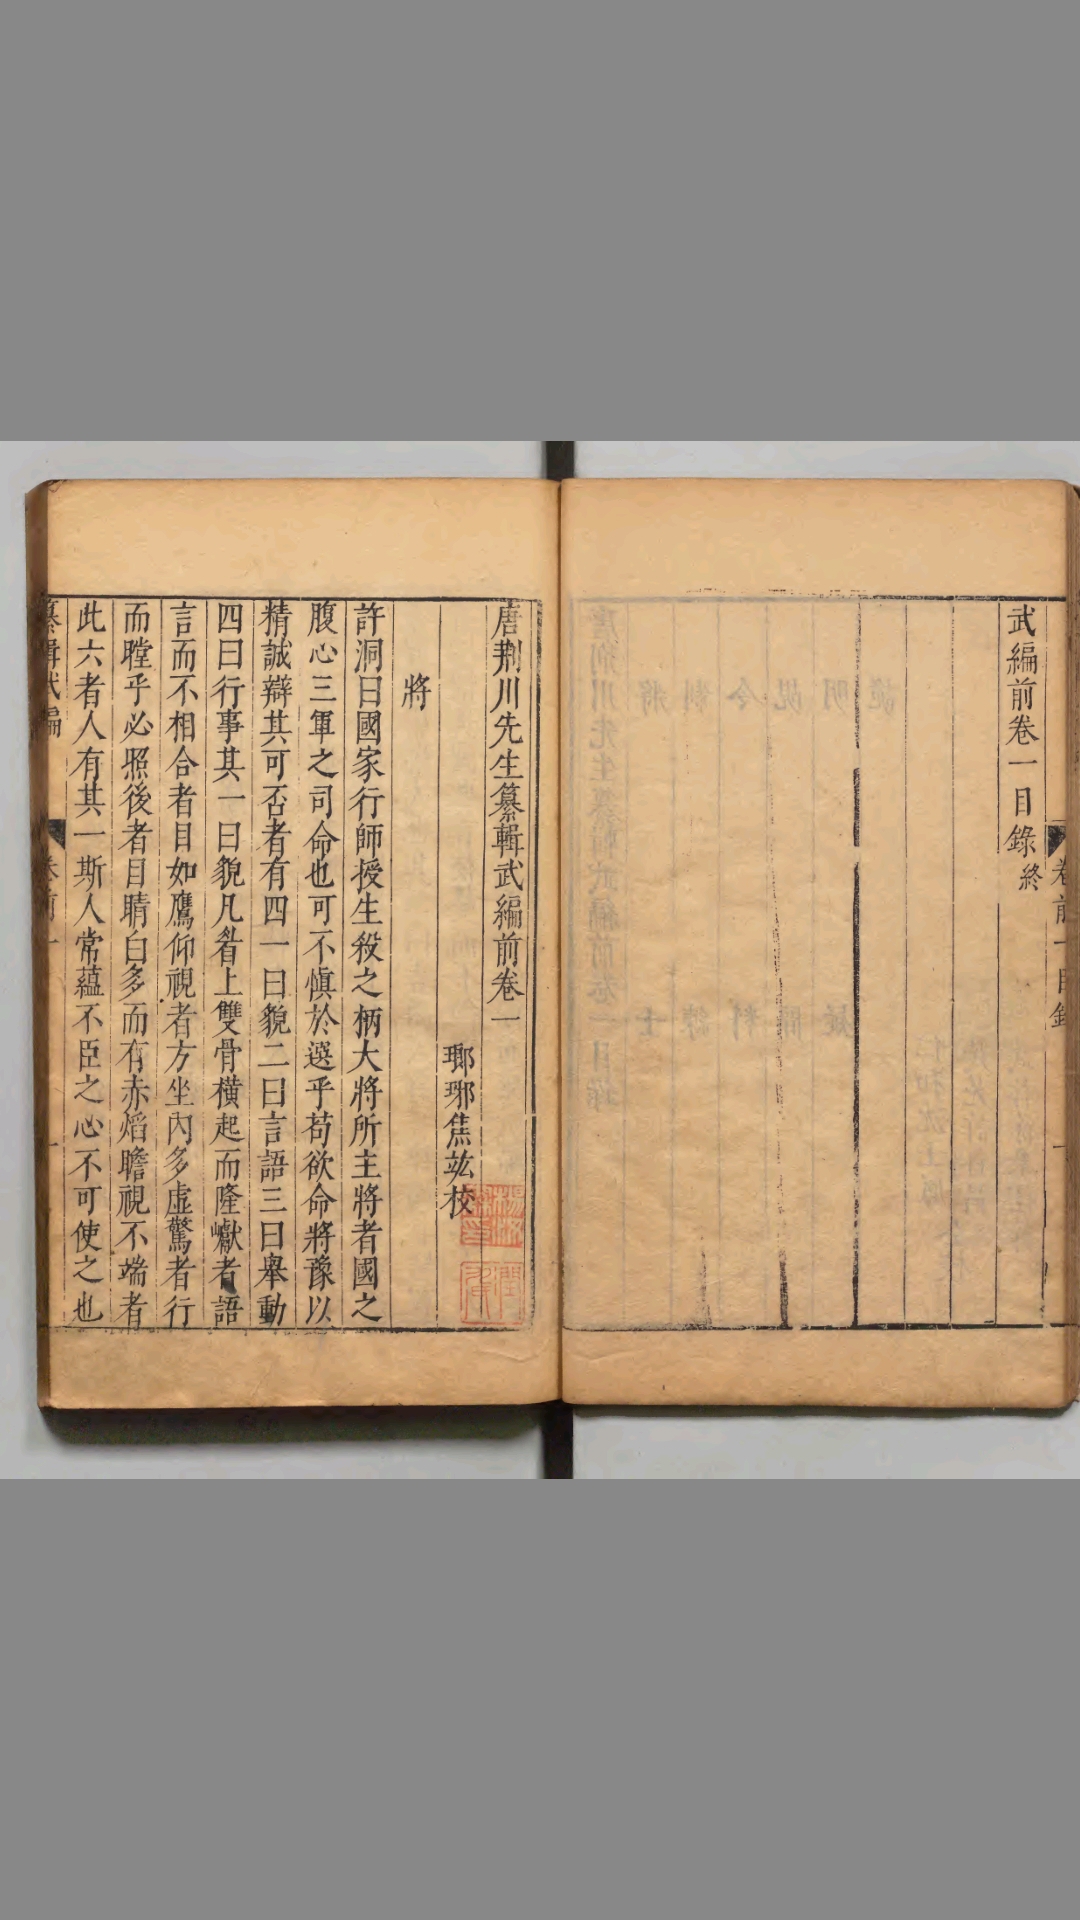 武編前卷一目錄終
唐荆川先生纂輯武編前卷一
瑯琊焦竑校
將
許洞曰國家行師授生殺之柄大將所主將者國之
腹心三軍之司命也可不慎於選乎苟欲命將豫以
精誠辯其可否者有四一曰貌二曰言語三曰舉動
四曰行事其一曰貌凡眉上雙骨橫起而隆巘者語
言而不相合者目如鷹仰視者方坐內多虛驚者行
而瞠乎必照後者目睛白多而有赤焰瞻視不端者
此六者人有其一斯人常蘊不臣之心不可使之也